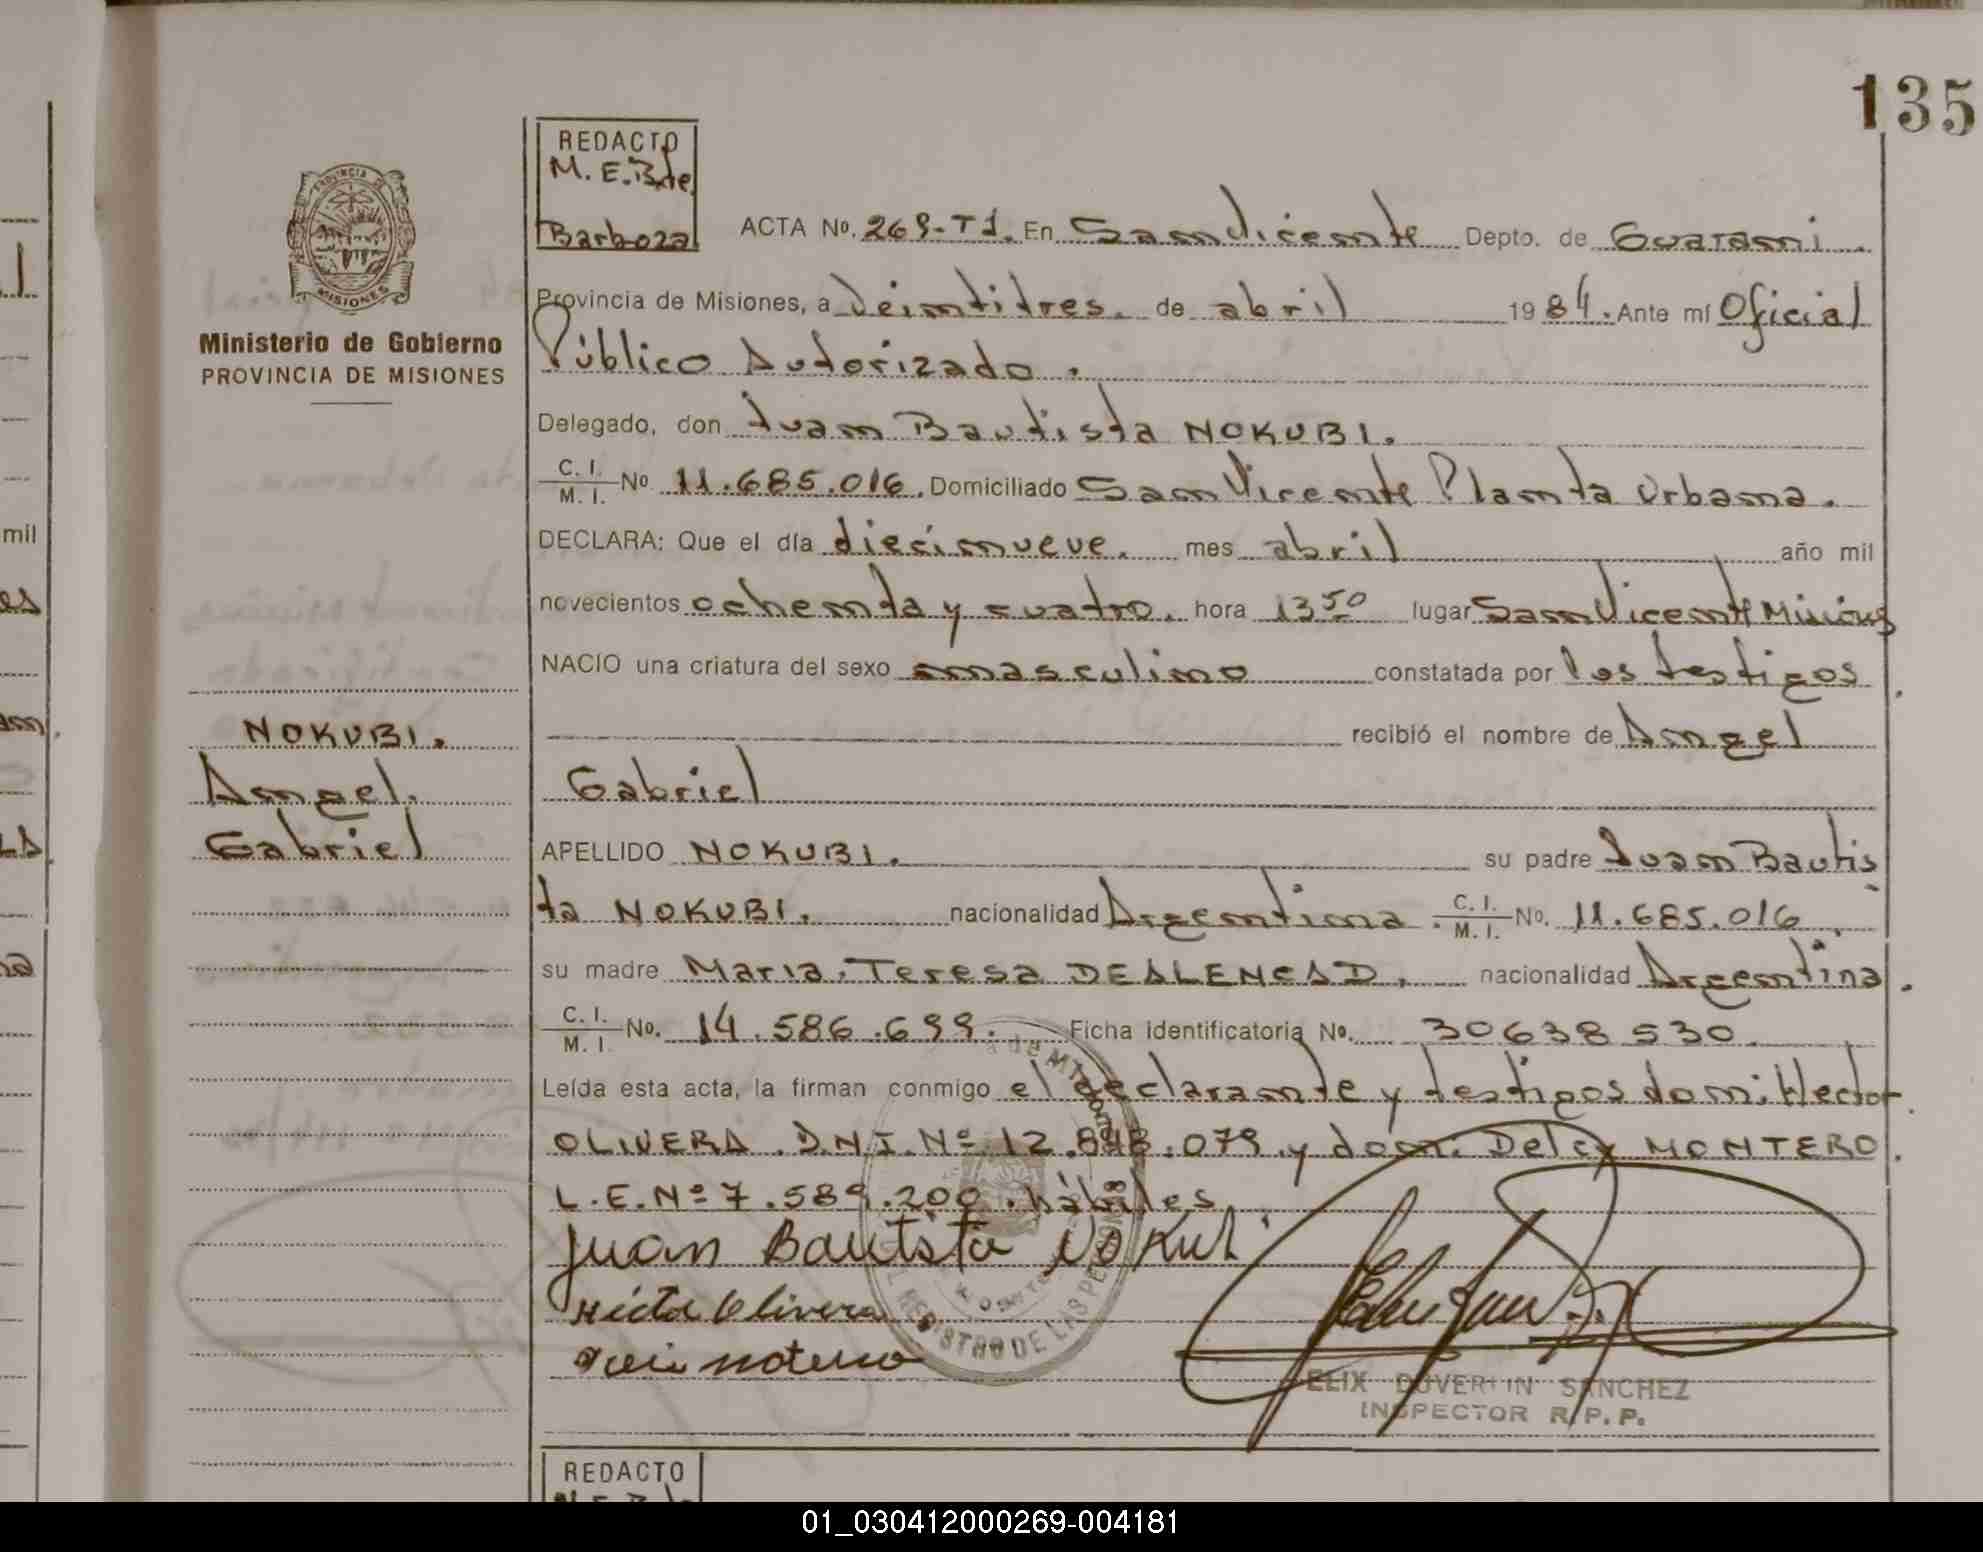 135
REDACTO
M. E. B. de
Barboza
PROVINCIA DE
MISIONES
Ministerio de Gobierno
PROVINCIA DE MISIONES
ACTA Nº. 269-T1. En San Vicente Depto. de Guarani.
Provincia de Misiones, a Veintitres. de abril 1984. Ante mí Oficial
Público Autorizado.
Delegado, don Juan Bautista NOKUBI.
C. I. / M. I. Nº 11.685.016. Domiciliado San Vicente Planta Urbana.
DECLARA: Que el día diecinueve. mes abril año mil
novecientos ochenta y cuatro. hora 13 50 lugar San Vicente Misiones
NACIO una criatura del sexo masculino constatada por los testigos
recibió el nombre de Angel
Gabriel
APELLIDO NOKUBI. su padre Juan Bautis
ta NOKUBI. nacionalidad Argentina. C. I. / M. I. No. 11.685.016.
su madre Maria Teresa DEALENCAD. nacionalidad Argentina.
C. I. / M. I. No. 14.586.699. Ficha identificatoria Nº. 30638530.
Leída esta acta, la firman conmigo el declarante y testigos don: Hector
OLIVERA. D.N.I. Nº 12.848.079. y don: Delcy MONTERO.
L.E. Nº 7.589.200. hábiles.
Juan Bautista Nokubi
Hector Olivera
FELIX DUVERLIN SANCHEZ
INSPECTOR R. P. P.
NOKUBI.
Angel.
Gabriel
mil
REDACTO
01_030412000269-004181